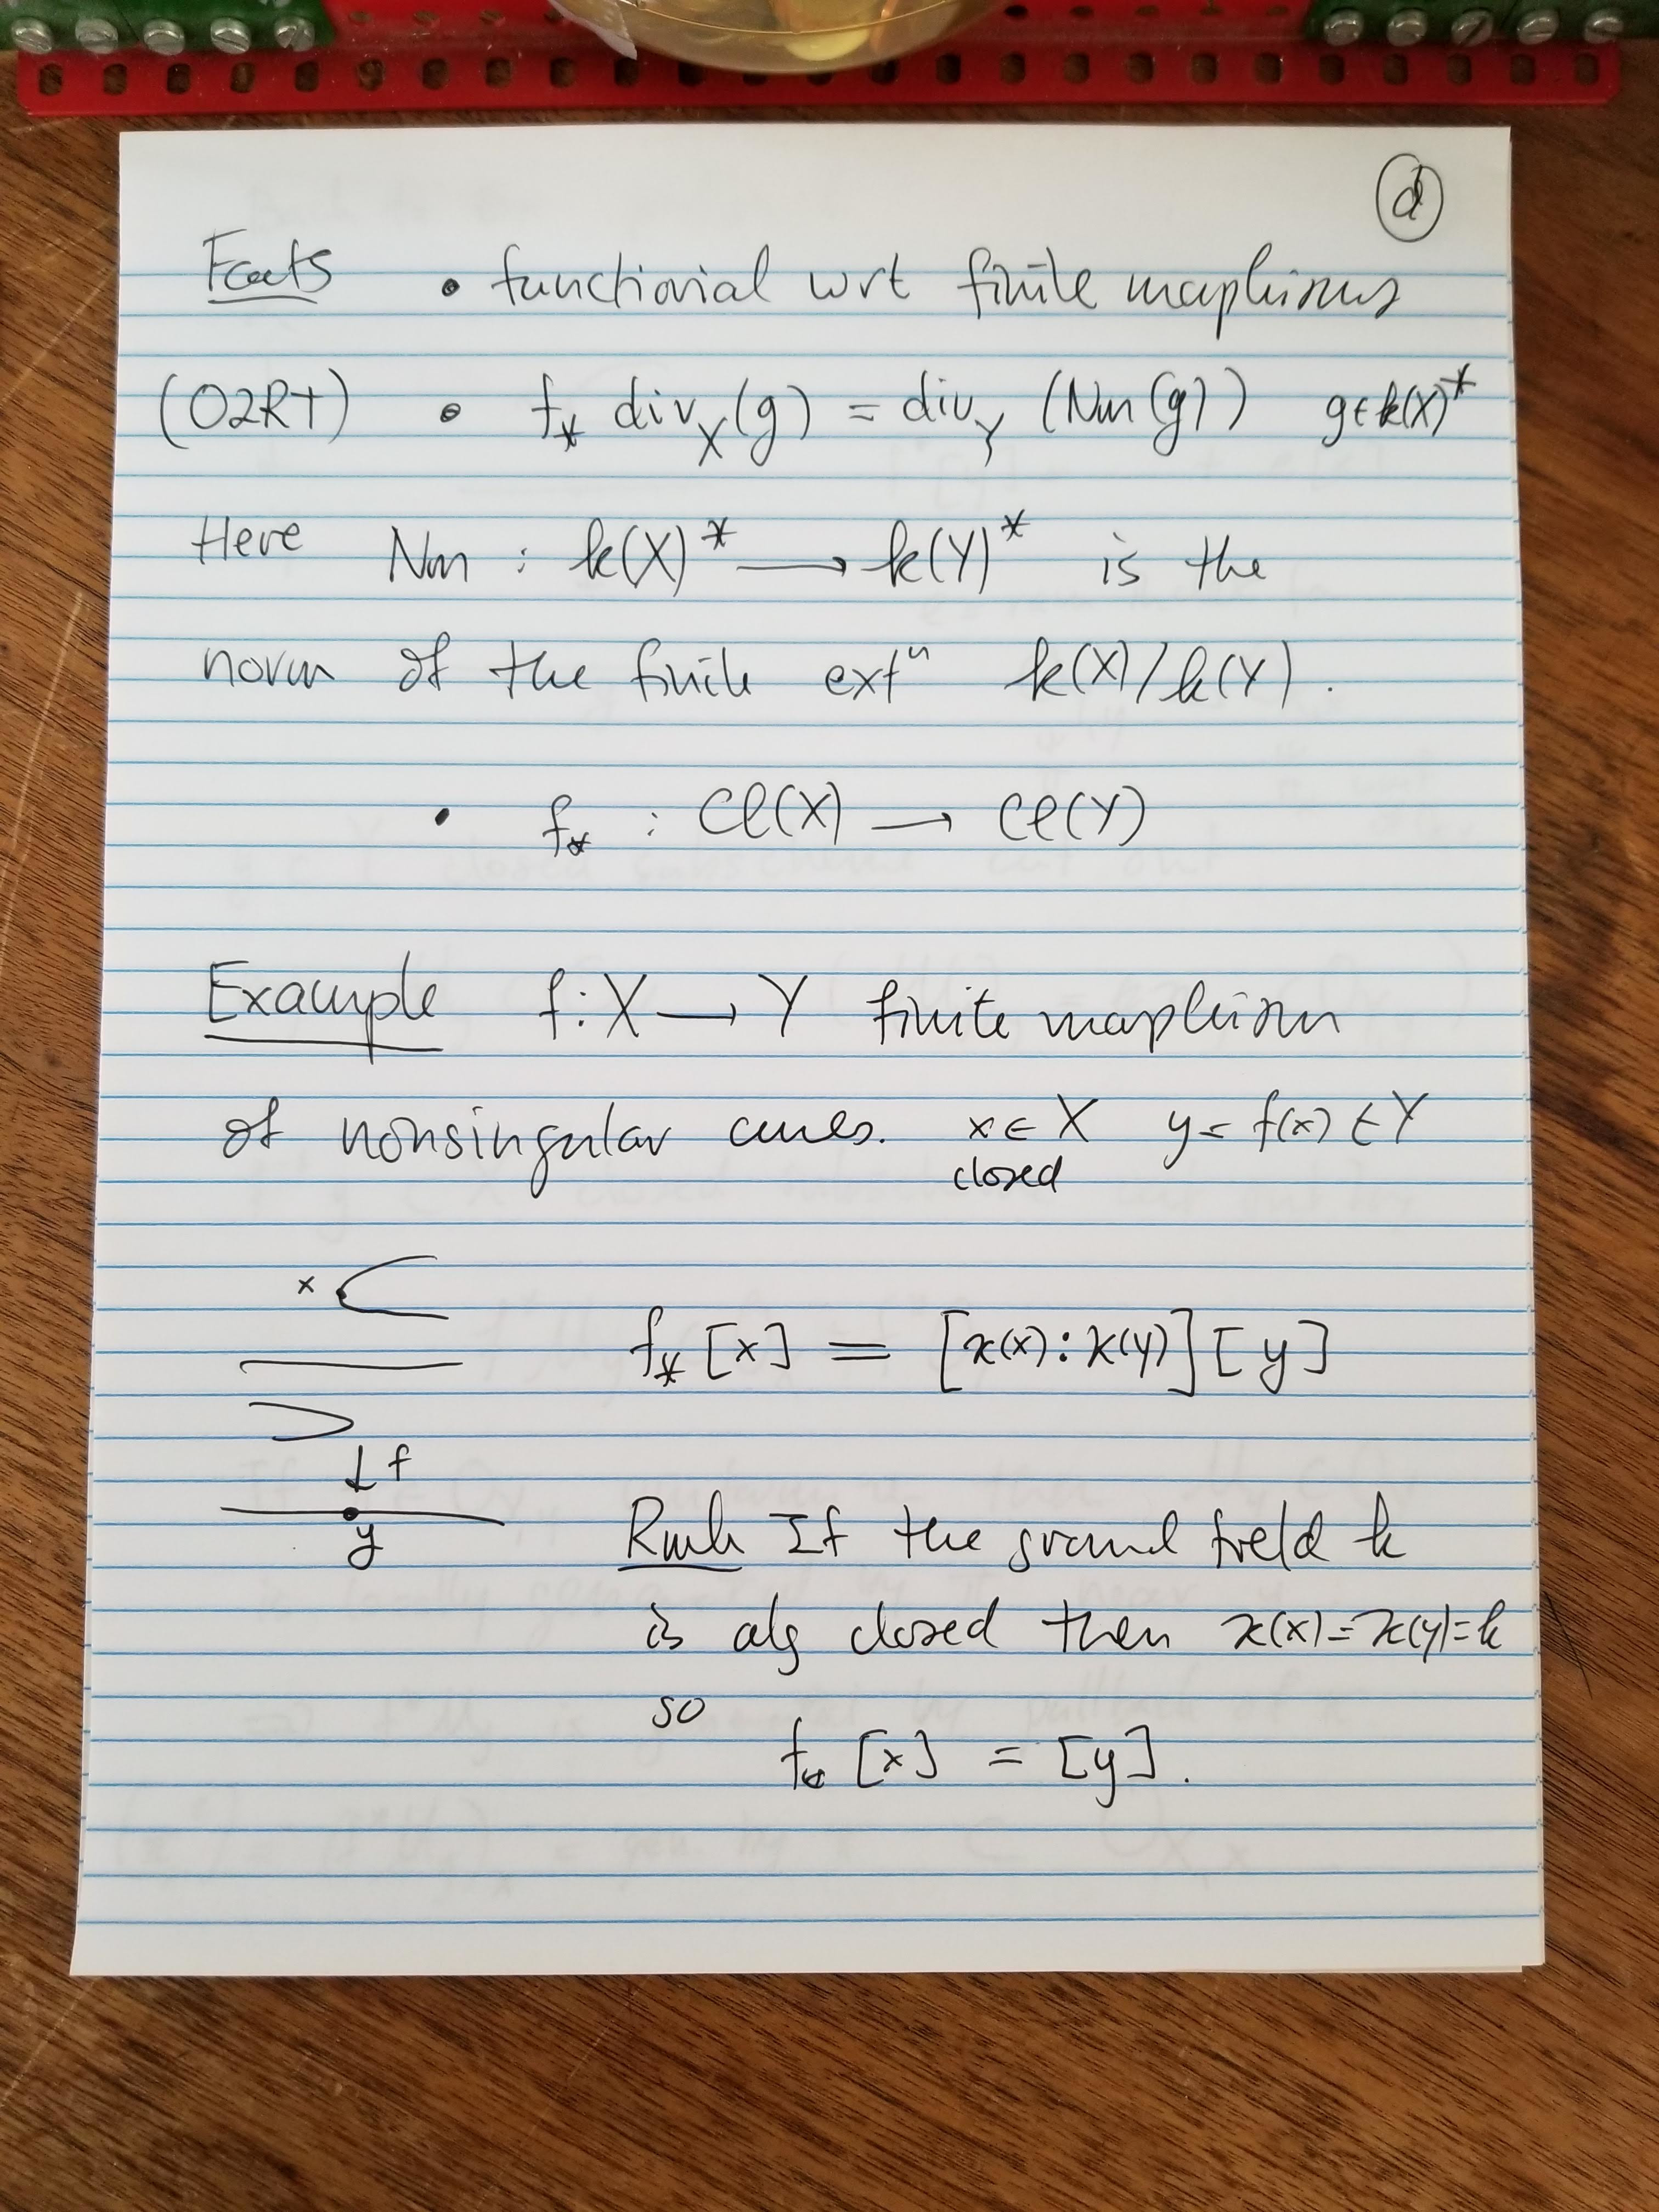 d
Facts • functional wrt finite morphisms
(02RT) • f_* div_X(g) = div_Y (Nm(g)) g∈k(X)^*
Here Nm : k(X)^* → k(Y)^* is the
norm of the finite ext^n k(X)/k(Y).
• f_* : Cl(X) → Cl(Y)
Example f: X → Y finite morphism
of nonsingular curves. x ∈ X y = f(x) ∈ Y
closed
x
f_* [x] = [κ(x):κ(y)] [y]
↓ f
y
Rmk If the ground field k
is alg closed then κ(x)=κ(y)=k
so
f_* [x] = [y].